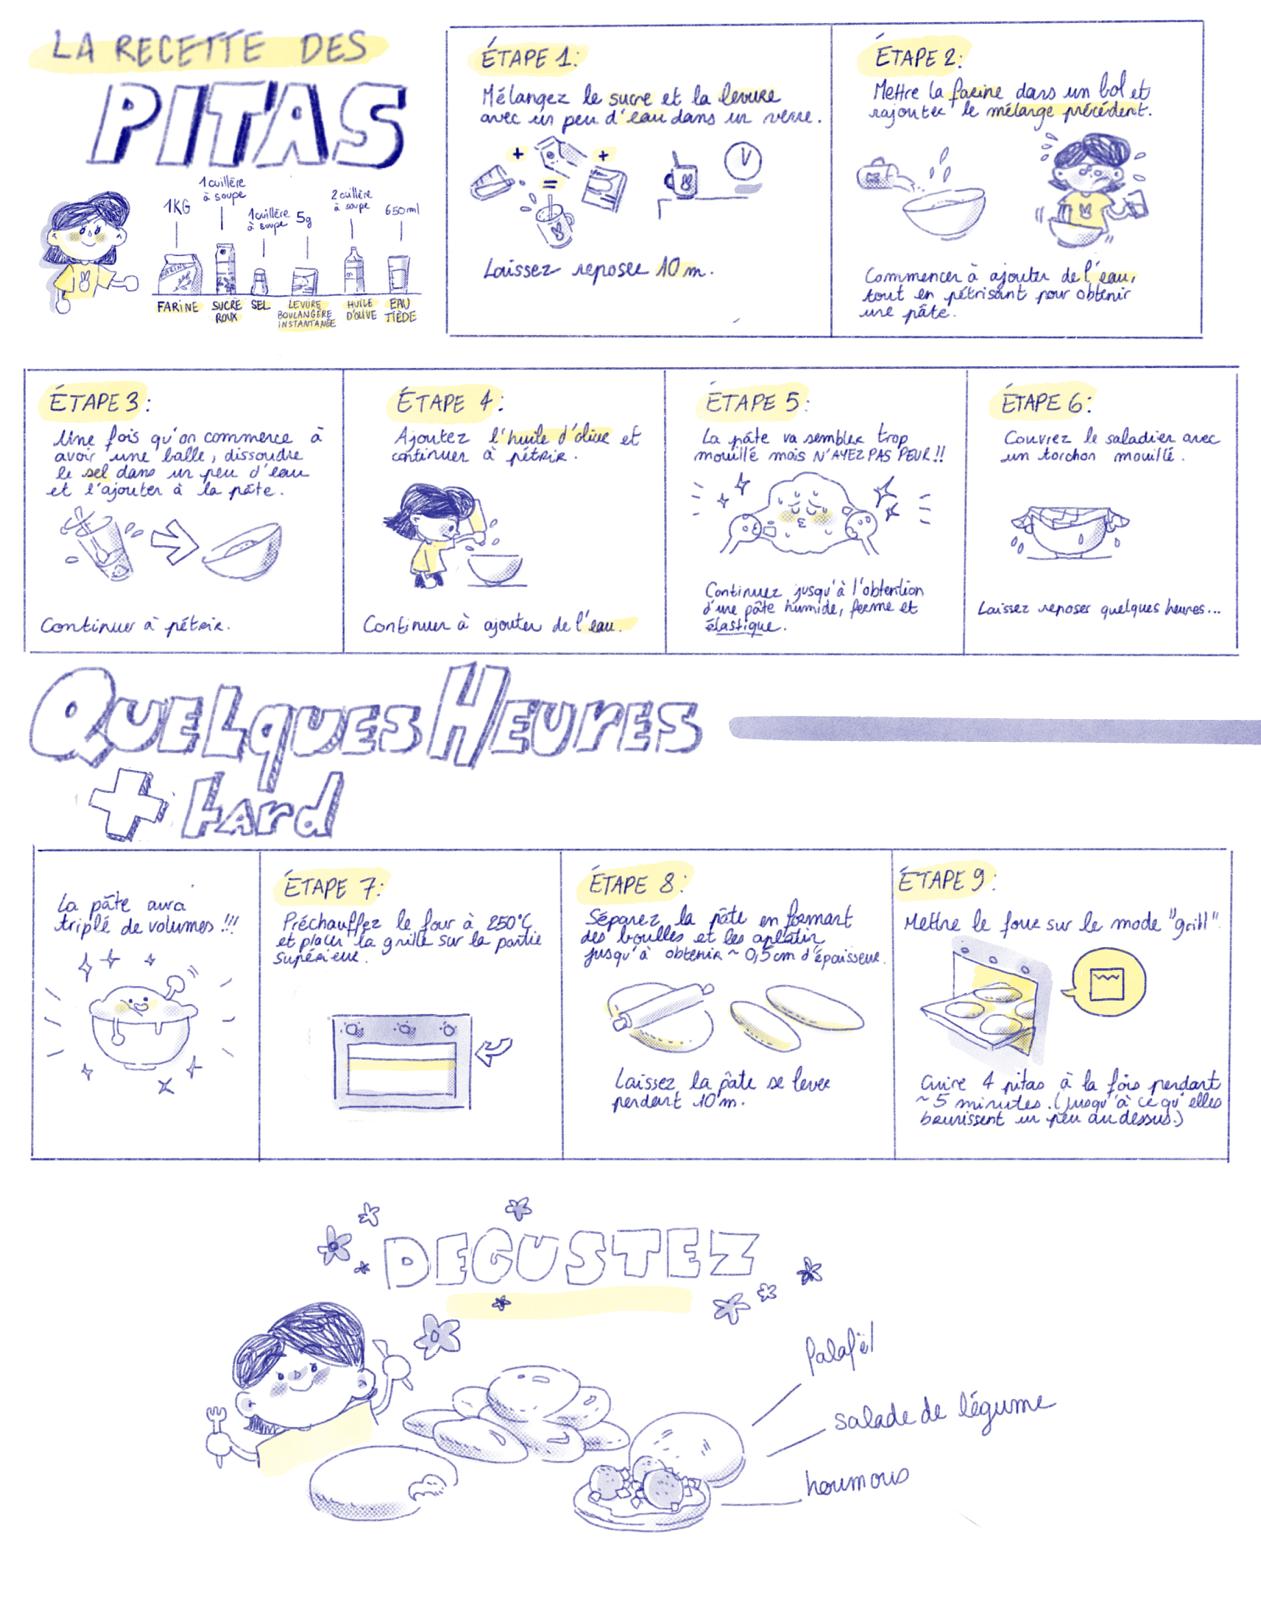 LA RECETTE DES
PITAS
1KG
1 cuillère
à soupe
1 cuillère
à soupe
5g
2 cuillère
à soupe
650ml
FARINE
FARINE
SUCRE
ROUX
SEL
LEVURE
BOULANGÈRE
INSTANTANÉE
HUILE
D'OLIVE
EAU
TIÈDE
ÉTAPE 1:
Mélangez le sucre et la levure
avec un peu d'eau dans un verre.
+
+
=
Laissez reposer 10 m.
ÉTAPE 2:
Mettre la farine dans un bol et
rajouter le mélange précédent.
Commencer à ajouter de l'eau,
tout en pétrissant pour obtenir
une pâte.
ÉTAPE 3:
Une fois qu'on commerce à
avoir une balle, dissoudre
le sel dans un peu d'eau
et l'ajouter à la pâte.
Continuer à pétrir.
ÉTAPE 4:
Ajoutez l'huile d'olive et
continuer à pétrir.
Continuer à ajouter de l'eau.
ÉTAPE 5:
La pâte va sembler trop
mouillé mais N'AYEZ PAS PEUR!!
Continuez jusqu'à l'obtention
d'une pâte humide, ferme et
élastique.
ÉTAPE 6:
Couvrez le saladier avec
un torchon mouillé.
Laissez reposer quelques heures...
QUELQUES HEURES
+ tard
La pâte aura
triplé de volumes !!!
ÉTAPE 7:
Préchauffez le four à 250°C
et placer la grille sur la partie
supérieur.
ÉTAPE 8:
Séparez la pâte en formant
des boulles et les aplatir
jusqu'à obtenir ~ 0,5 cm d'épaisseur.
Laissez la pâte se lever
pendant 10 m.
ÉTAPE 9:
Mettre le four sur le mode "grill".
Cuire 4 pitas à la fois pendant
~ 5 minutes. (jusqu'à ce qu'elles
brunissent un peu au dessus.)
DEGUSTEZ
falafël
salade de légume
houmous